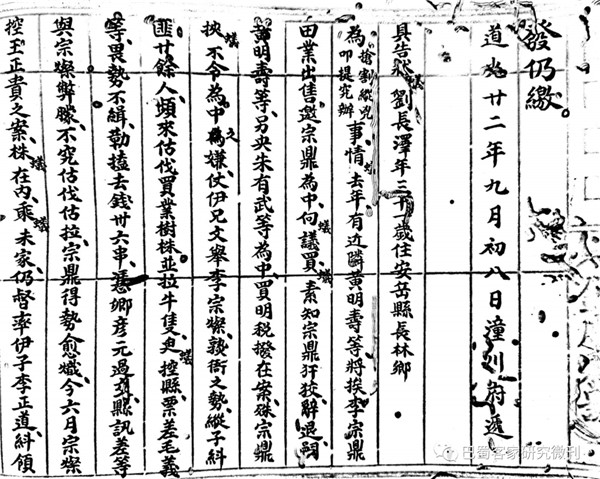 發仍繳。
道光廿二年九月初八日潼川府遞
具告狀蟻劉長澤年三十一歲住安岳縣長林鄉
為搶割縱兇叩提究辦事情蟻去年有近隣黃明壽等將挨李宗鼎
田業出售邀宗鼎為中向蟻議買蟻素知宗鼎奸狡辭退嗣
黃明壽等另央朱有武等為中買明稅撥在案殊宗鼎
挾蟻不令為中之為嫌仗伊兄文舉李宗燦談衙之勢縱子糾
匪廿餘人頻來估伐買業樹株並拉牛隻蟻控縣票差毛義
等畏勢不緝勒搕去錢卅六串憑鄉彥元過縣訊差等
與宗燦弊朦不究估伐估拉宗鼎得勢愈熾今六月宗燦
控玉正貴之案株蟻在內乘蟻未家仍督率伊子李正道糾領
巴蜀客家研究微刊